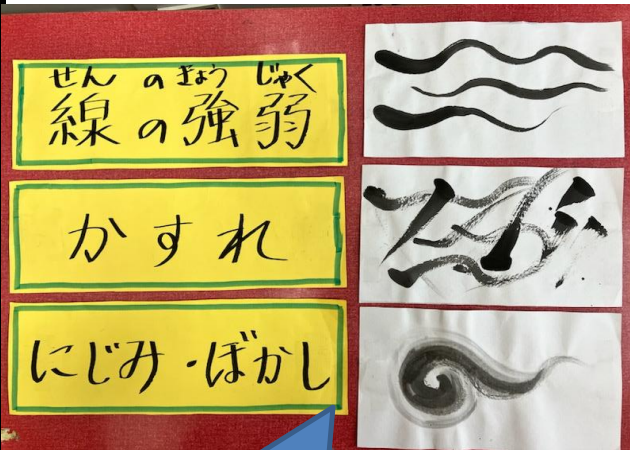 せん の ぎょう じゃく
線の強弱
かすれ
にじみ・ぼかし